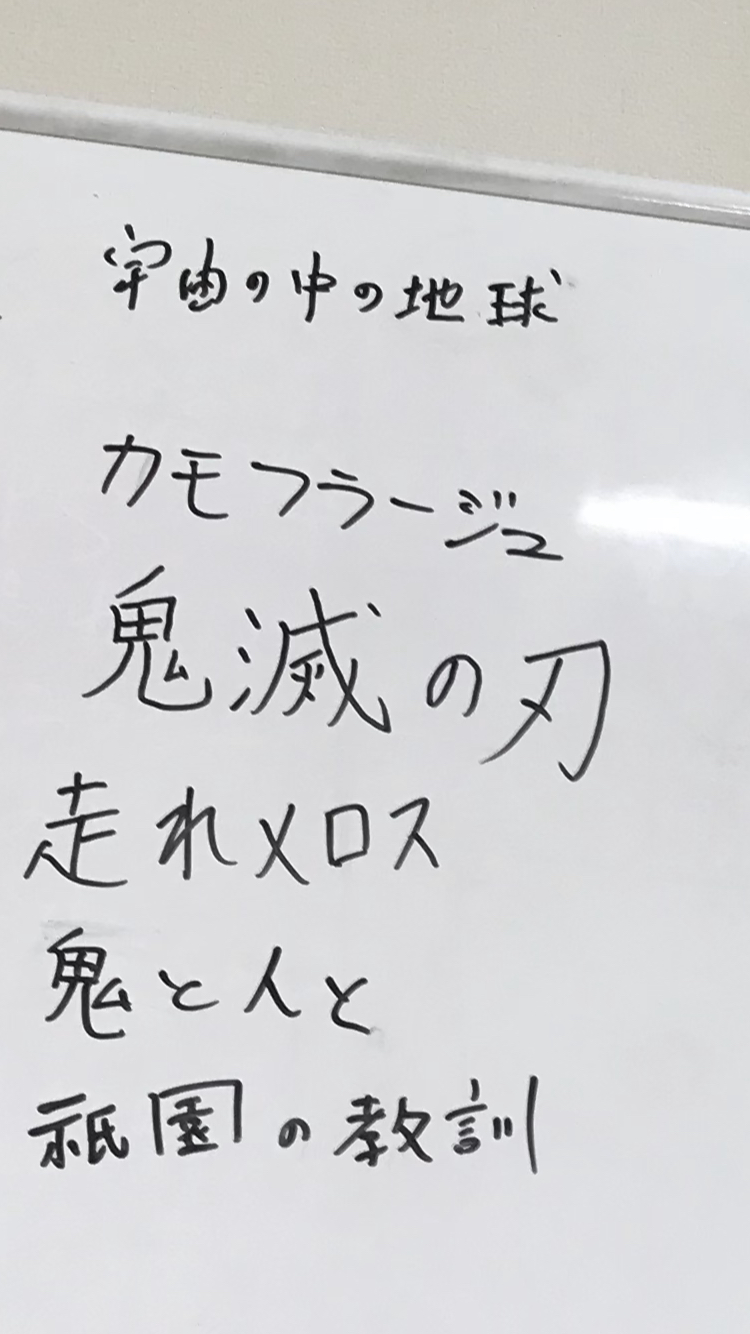 宇宙の中の地球
カモフラージュ
鬼滅の刃
走れメロス
鬼と人と
祇園の教訓